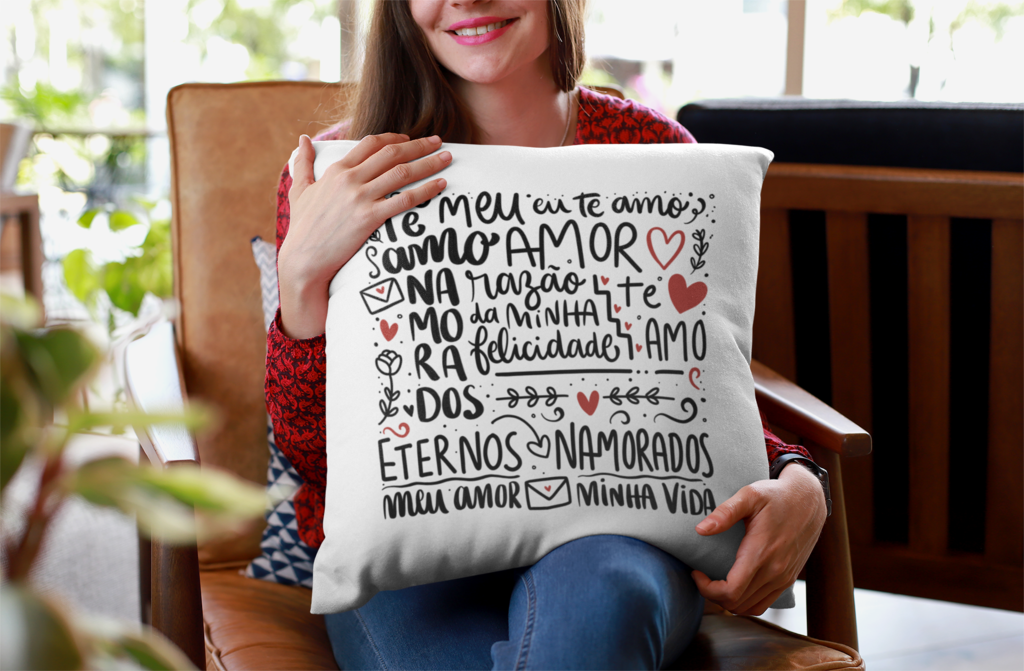 TE MEU eu te amo
amo AMOR
NA razão te
MO da MINHA AMO
RA felicidade
DOS
ETERNOS NAMORADOS
meu amor MINHA VIDA